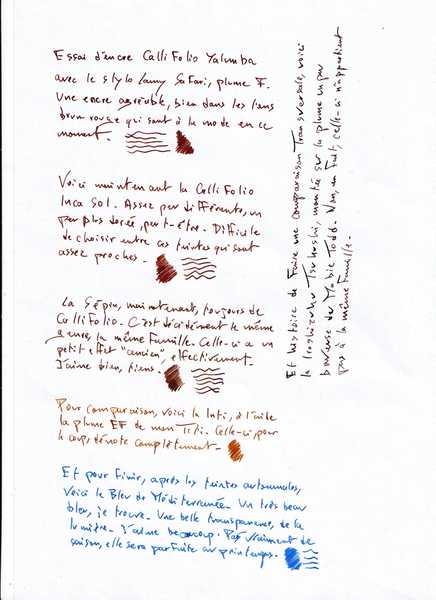 Essai d'encre Calli Folio Yalumba
avec le stylo Lamy Safari, plume F.
Une encre agréable, bien dans les tons
brun rouge qui sont à la mode en ce
moment.
Voici maintenant la Calli Folio
Inca Sol. Assez peu différente, un
peu plus dorée, peut-être. Difficile
de choisir entre ces teintes qui sont
assez proches.
La Sépia, maintenant, toujours de
Calli Folio. C'est décidément la même
encre, la même famille. Celle-ci a un
petit effet "ancien", effectivement.
J'aime bien, tiens.
Pour comparaison, voici la Inti, à l'aide
la plume EF de mon Tiki. Celle-ci, pour
le coup, dénote complètement.
Et pour finir, après les teintes automnales,
voici le Bleu de Méditerranée. Un très beau
bleu, je trouve. Une belle transparence, de la
lumière. J'aime beaucoup. Pas vraiment de
saison, elle sera parfaite au printemps.
Et histoire de faire une comparaison transversale, voici
la Iroshizuku Tsukushi, montée sur la plume un peu
baveuse du Mabie Todd. Non, en fait, celle-ci n'appartient
pas à la même famille.